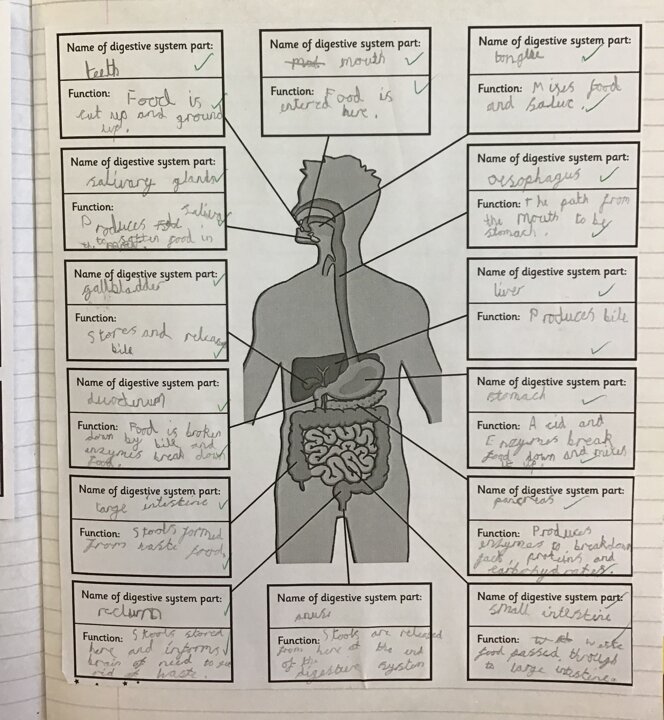 Name of digestive system part:
teeth
Function: Food is
cut up and ground
up.
Name of digestive system part:
mouth
Function: Food is
entered here.
Name of digestive system part:
tongue
Function: Mixes food
and
Name of digestive system part:
salivary glands
Function: Saliva
Produces
to soften food in
the mouth.
Name of digestive system part:
oesophagus
Function: the path from
the mouth to
stomach.
Name of digestive system part:
gallbladder
Function:
Stores and release
bile
Name of digestive system part:
liver
Function: Produces bile
Name of digestive system part:
duodenum
Function: Food is broken
down by bile and
enzymes break down
food.
Name of digestive system part:
stomach
Function: Acid and
Enzymes break
food down and
Name of digestive system part:
large intestine
Function: Stools formed
from waste food.
Name of digestive system part:
pancreas
Function: Produces
enzymes to breakdown
proteins and
carbohydrates.
Name of digestive system part:
rectum
Function: Stools stored
here and informs
brain of need to
rid of waste.
Name of digestive system part:
anus
Function: Stools are released
from here at the end
of the
digestive system
Name of digestive system part:
small intestine
Function: waste
food passed through
to large intestine.